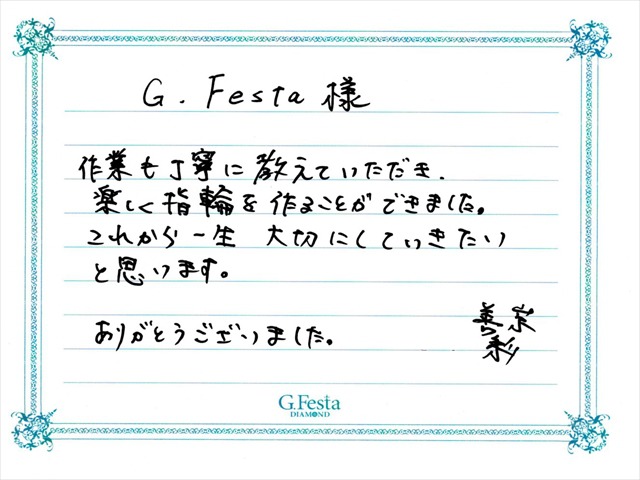 G. Festa 様
作業も丁寧に教えていただき、
楽しく指輪を作ることができました。
これから一生 大切にしていきたい
と思います。
ありがとうございました。
彩
G.Festa
DIAMOND